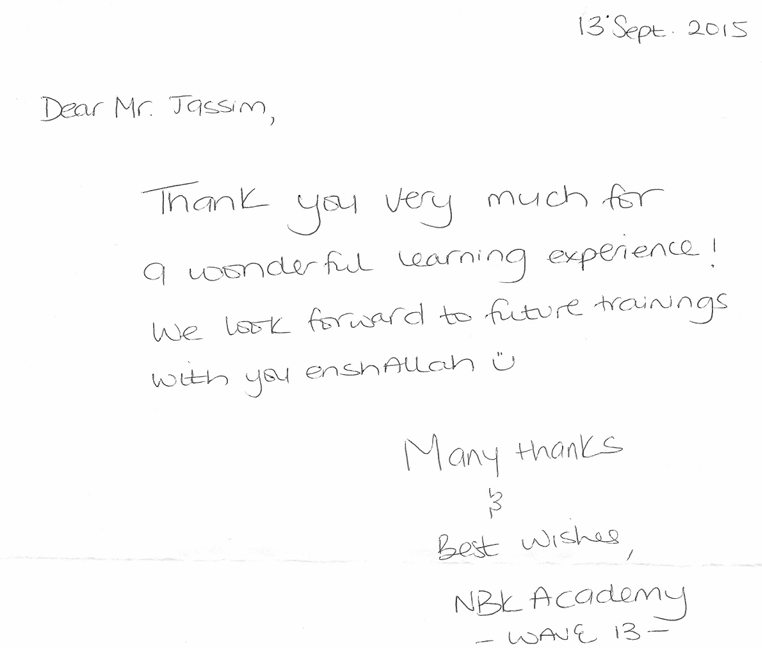 13 Sept. 2015
Dear Mr. Jassim,
Thank you very much for
a wonderful learning experience!
We look forward to future trainings
with you enshAllah ☺
Many thanks
&
Best Wishes,
NBK Academy
- WAVE 13 -